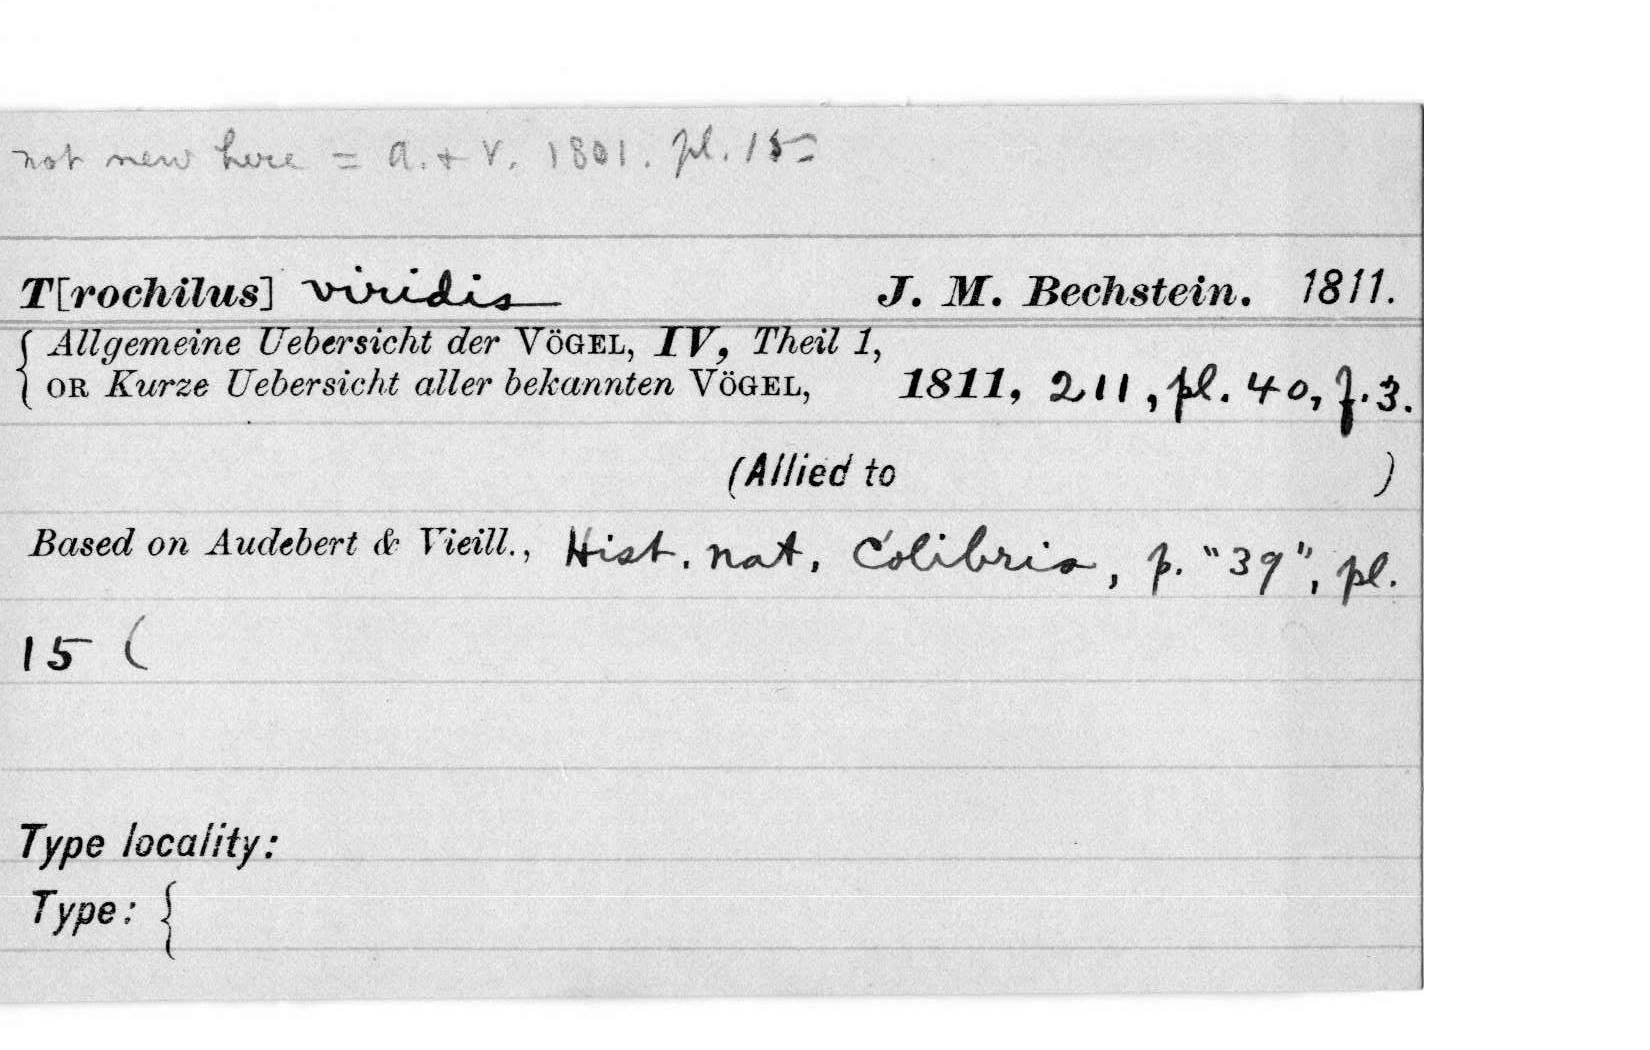 not new here = A. + V. 1801. pl. 15
T[rochilus] viridis J. M. Bechstein. 1811.
{ Allgemeine Uebersicht der VÖGEL, IV, Theil 1,
OR Kurze Uebersicht aller bekannten VÖGEL, 1811, 211, pl. 40, f. 3.
(Allied to )
Based on Audebert & Vieill., Hist. nat. Colibris, p. "39", pl.
15 (
Type locality:
Type: {